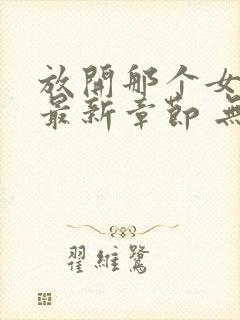 放開那个女
最新章節 無
翟維鷺